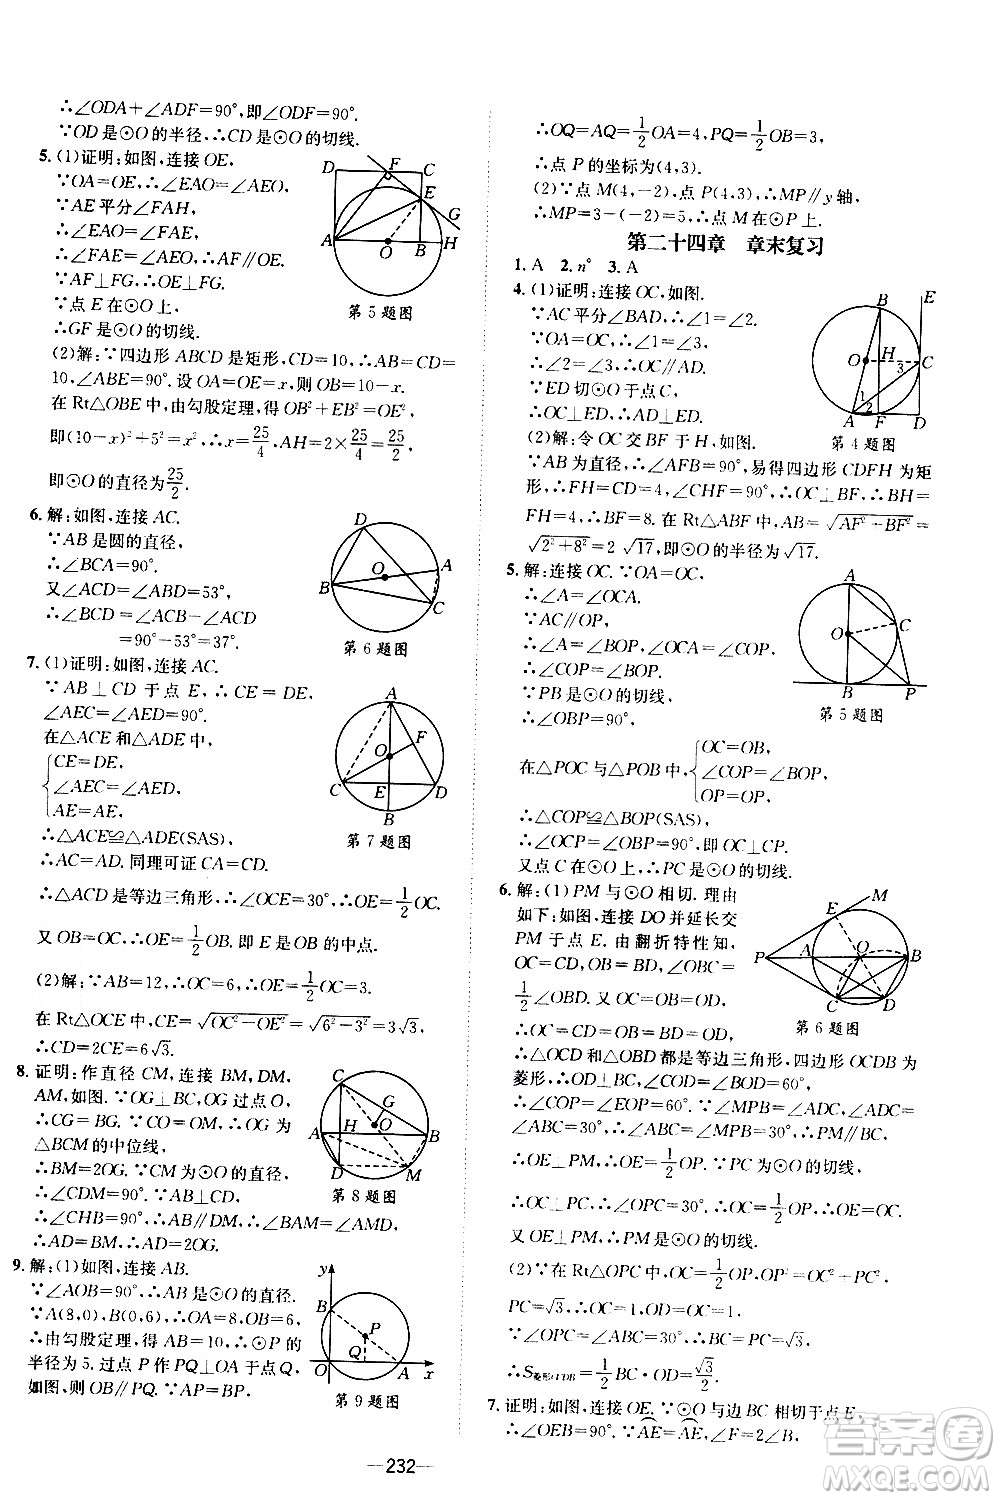 ∴∠ODA+∠ADF=90°,即∠ODF=90°.
∵OD是⊙O的半径,∴CD是⊙O的切线.
5. (1)证明:如图,连接OE,
∵OA=OE,∴∠EAO=∠AEO.
∵AE平分∠FAH,
∴∠EAO=∠FAE,
∴∠FAE=∠AEO,∴AF∥OE,
∴∠AFE+∠OEF=180°.
∵AF⊥GF,∴OE⊥GF.
∵点E在⊙O上,
∴GF是⊙O的切线.
第5题图
(2)解:∵四边形ABCD是矩形,CD=10,∴AB=CD=
10,∠ABE=90°. 设OA=OE=x,则OB=10-x.
在Rt△OBE中,由勾股定理,得OB²+EB²=OE²,
即(10-x)²+5²=x²,∴x=25/4,AH=2×25/4=25/2,
即⊙O的直径为25/2.
6. 解:如图,连接AC.
∵AB是圆的直径,
∴∠BCA=90°.
又∠ACD=∠ABD=53°,
∴∠BCD=∠ACB-∠ACD
=90°-53°=37°.
第6题图
7. (1)证明:如图,连接AC.
∵AB⊥CD于点E,∴CE=DE,
∠AEC=∠AED=90°.
在△ACE和△ADE中,
CE=DE,
∠AEC=∠AED,
AE=AE,
∴△ACE≌△ADE(SAS),
∴AC=AD. 同理可证CA=CD.
第7题图
∴△ACD是等边三角形,∴∠OCE=30°,∴OE=1/2OC.
又OB=OC,∴OE=1/2OB. 即E是OB的中点.
(2)解:∵AB=12,∴OC=6,∴OE=1/2OC=3.
在Rt△OCE中,CE=√(OC²-OE²)=√(6²-3²)=3√3,
∴CD=2CE=6√3.
8. 证明:作直径CM,连接BM,DM,
AM,如图. ∵OG⊥BC,OG过点O,
∴CG=BG. ∵CO=OM,∴OG为
△BCM的中位线,
∴BM=2OG. ∵CM为⊙O的直径,
∴∠CDM=90°. ∵AB⊥CD,
第8题图
∴∠CHB=90°,∴AB∥DM,∴∠BAM=∠AMD,
∴AD=BM,∴AD=2OG.
9. 解:(1)如图,连接AB.
∵∠AOB=90°,∴AB是直径.
∵A(8,0),B(0,6),∴OA=8,OB=6,
∴由勾股定理,得AB=10,∴⊙P的
半径为5. 过点P作PQ⊥OA于点Q,
如图,则OB∥PQ. ∵AP=BP.
第9题图
∴OQ=AQ=1/2OA=4,PQ=1/2OB=3,
∴点P的坐标为(4,3).
(2)∵点M(4,-2),点P(4,3),∴MP∥y轴,
∴MP=3-(-2)=5,∴点M在⊙P上.
第二十四章 章末复习
1. A 2. n° 3. A
4. (1)证明:连接OC,如图.
∵AC平分∠BAD,∴∠1=∠2.
∵OA=OC,∴∠1=∠3,
∴∠2=∠3,∴OC∥AD.
∵ED切⊙O于点C,
∴OC⊥ED,∴AD⊥ED.
(2)解:令OC交BF于H,如图.
第4题图
∵AB为直径,∴∠AFB=90°,易得四边形CDFH为矩
形,∴FH=CD=4,∠CHF=90°,∴OC⊥BF,∴BH=
FH=4,∴BF=8. 在Rt△ABF中,AB=√(AF²+BF²)=
√(2²+8²)=2√17,即⊙O的半径为√17.
5. 解:连接OC. ∵OA=OC,
∴∠A=∠OCA.
∵AC∥OP,
∴∠A=∠BOP,∠ACO=∠COP,
∴∠COP=∠BOP.
∵PB是⊙O的切线,
∴∠OBP=90°.
第5题图
在△POC与△POB中,
OC=OB,
∠COP=∠BOP,
OP=OP,
∴△COP≌△BOP(SAS),
∴∠OCP=∠OBP=90°,即OC⊥CP.
又点C在⊙O上,∴PC是⊙O的切线.
6. 解:(1)PM与⊙O相切. 理由
如下:如图,连接DO并延长交
PM于点E. 由翻折特性知,
OC=CD,BO=BD,∠OBC=
1/2∠OBD. ∵OC=OB,
第6题图
∴OC=CD=OB=BD,
∴△OCD和△OBD都是等边三角形,四边形OCDB为
菱形,∴OD⊥BC,∠COD=∠BOD=60°,
∴∠COP=∠EOP=60°. ∵∠MPB=∠ADC,∠ADC=
∠ABC=30°,∴∠ABC=∠MPB=30°,∴PM∥BC,
∴OE⊥PM,∴OE=1/2OP. ∵PC是⊙O的切线,
∴OC⊥PC,∴∠OPC=30°,∴OC=1/2OP,∴OE=OC.
又OE⊥PM,∴PM是⊙O的切线.
(2)∵在Rt△OPC中,∠OPC=30°,OC=1/2OP,
PC=√3,∴OC=√3/3PC=1,
∴OB=CD=OC=1,∴BC=PC=√3,
∴S菱形OCDB=1/2OD·BC=√3/2.
7. 证明:如图,连接OE. ∵⊙O与边BC相切于点E,
∴∠OEB=90°.
232
答案圈
MXQE.COM